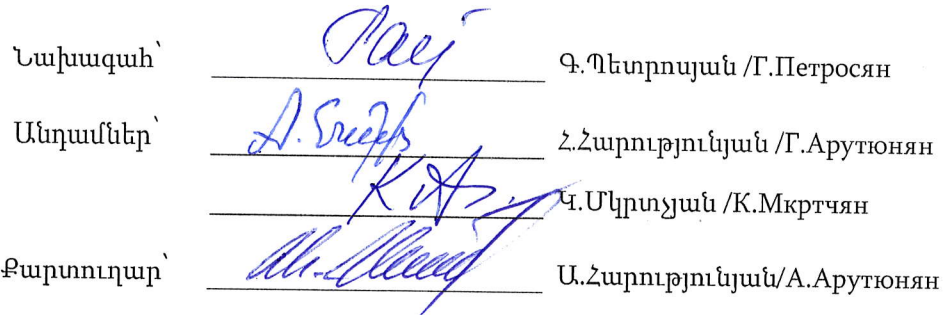 Նախագահ՝ Գ.Պետրոսյան /Г.Петросян
Անդամներ՝ Հ.Հարությունյան /Г.Арутюнян
Կ.Մկրտչյան /К.Мкртчян
Քարտուղար՝ Ա.Հարությունյան/А.Арутюнян